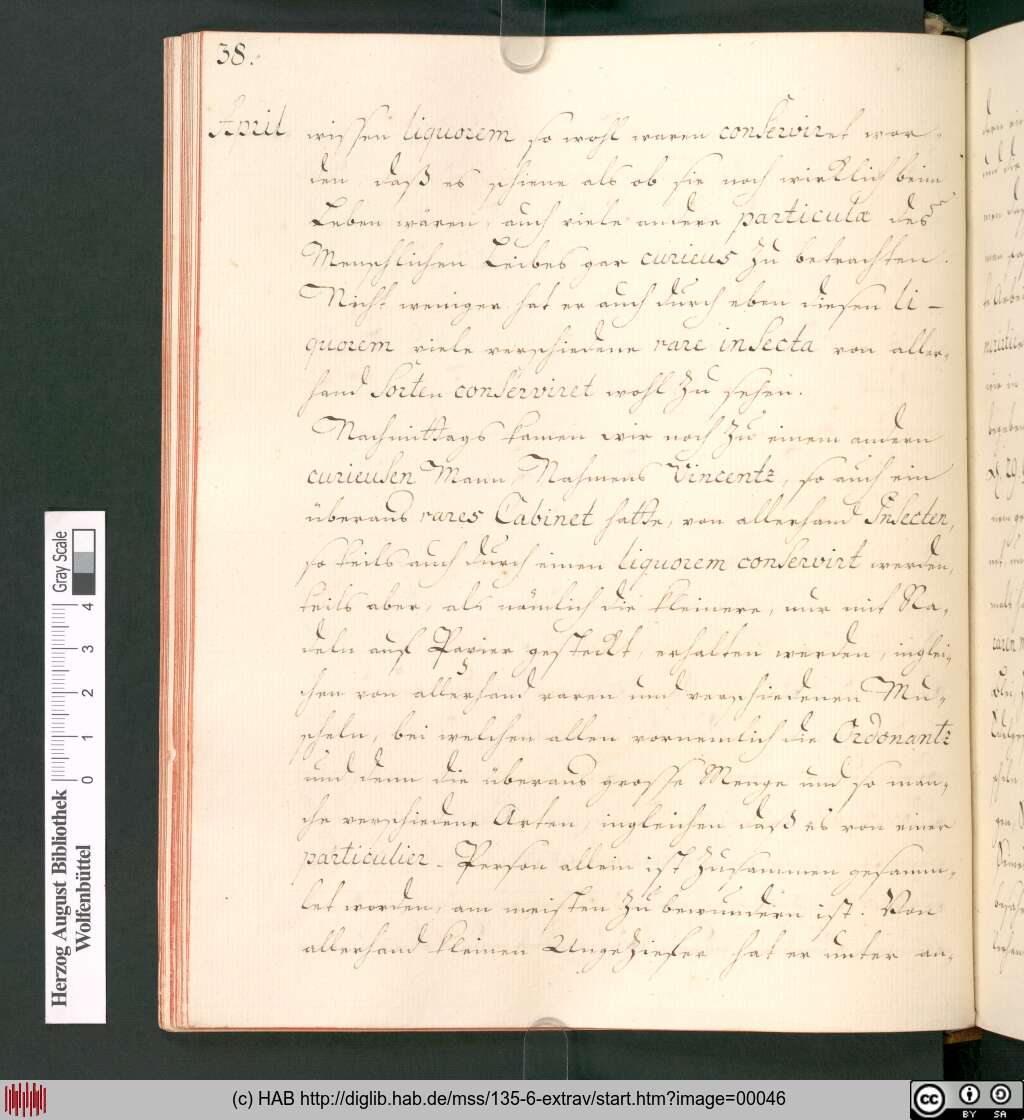 38.
April
wissen liquorem so wohl waren conserviret wor-
den, daß es schiene als ob sie noch wirklich beim
Leben wären, auch viele andere particulæ des
Menschlichen Leibes gar curieus zu betrachten.
Nicht weniger hat er auch durch eben diesen li-
quorem viele verschiedene rare insecta von aller-
hand Sorten conserviret wohl zu sehen.
Nachmittags kamen wir noch zu einem andern
curieusen Mann, Nahmens Vincentz, so auch ein
überaus rares Cabinet hatte, von allerhand Insecten,
so teils auch durch einen liquorem conservirt werden,
teils aber, als nämlich die kleinere, nur mit Na-
deln auf Papier gesteckt, erhalten werden, inglei-
chen von allerhand raren und verschiedenen Mu-
scheln, bei welchen allen vornemlich die Ordonantz
und denn die überaus grosse Menge und so man-
che verschiedene Arten, ingleichen daß es von einer
particulier-Person allein ist zusammen gesamm-
let worden, am meisten zu bewundern ist. Von
allerhand kleinen Ungeziefer hat er unter an-
Herzog August Bibliothek
Wolfenbüttel
0 1 2 3 4
Gray Scale
(c) HAB http://diglib.hab.de/mss/135-6-extrav/start.htm?image=00046
cc BY SA